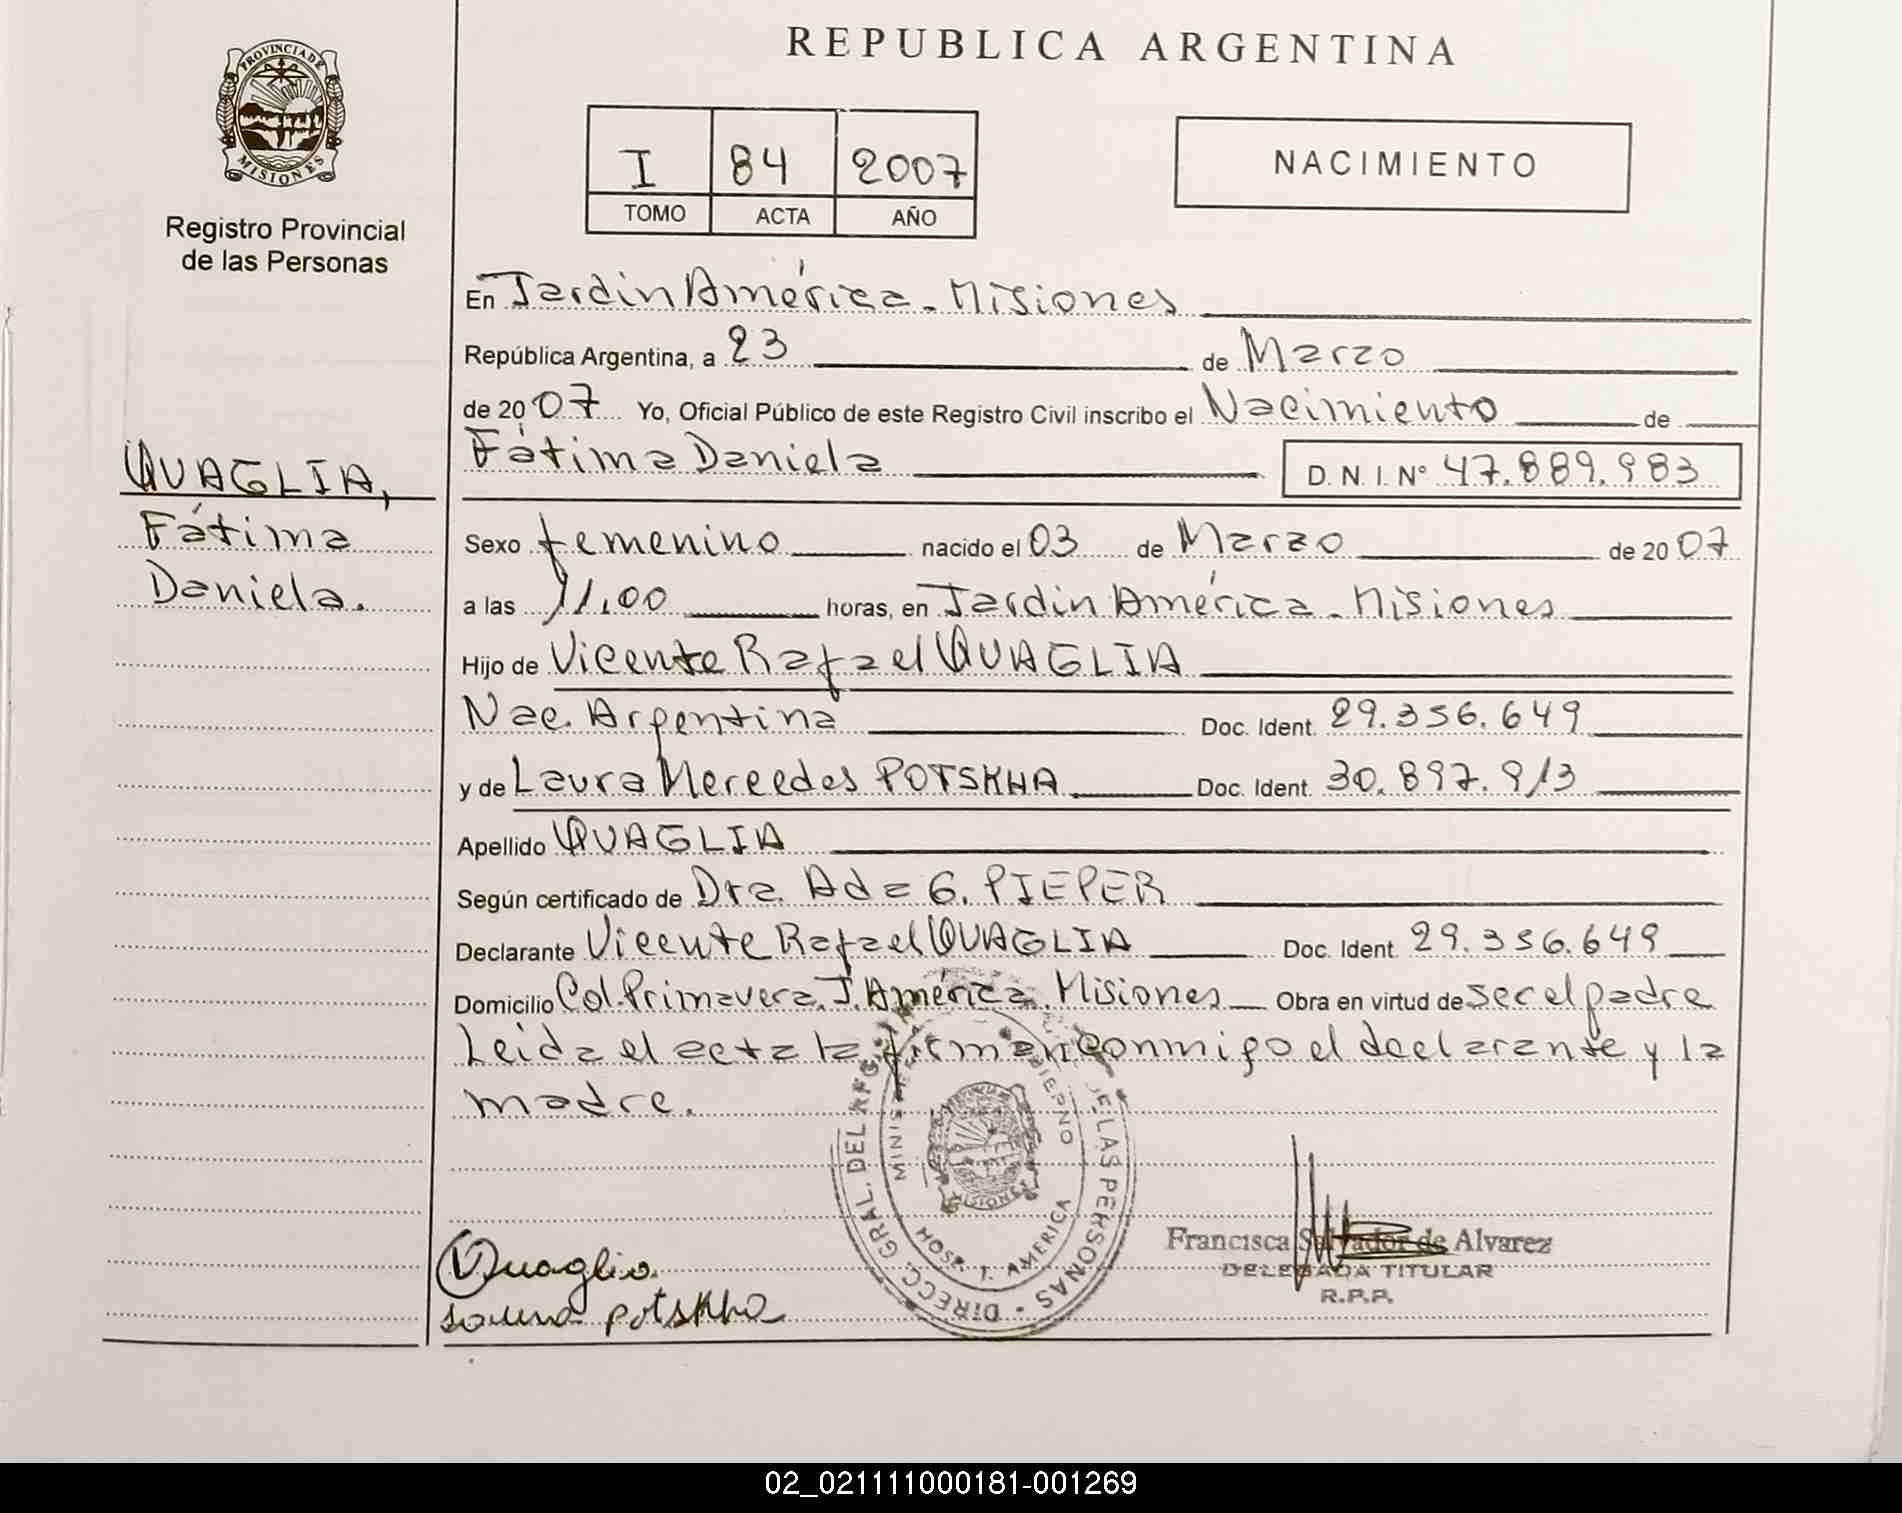 REPUBLICA ARGENTINA
PROVINCIA DE
MISIONES
Registro Provincial
de las Personas
I 84 2007
TOMO ACTA AÑO
NACIMIENTO
En Jardin América - Misiones
República Argentina, a 23 de Marzo
de 2007 Yo, Oficial Público de este Registro Civil inscribo el Nacimiento de
Fátima Daniela D. N. I. Nº 47.889.983
QUAGLIA,
Fátima
Daniela.
Sexo femenino nacido el 03 de Marzo de 2007
a las 11,00 horas, en Jardin América - Misiones
Hijo de Vicente Rafael QUAGLIA
Nac. Argentina Doc. Ident. 29.356.649
y de Laura Mercedes POTSKHA Doc. Ident. 30.897.913
Apellido QUAGLIA
Según certificado de Dra. Ada G. PIEPER
Declarante Vicente Rafael QUAGLIA Doc. Ident. 29.356.649
Domicilio Col. Primavera, J. América. Misiones Obra en virtud de ser el padre
Leida el acta la firman conmigo el declarante y la
madre.
DIRECC. GRAL. DEL REG. DE LAS PERSONAS
HOSP. J. AMERICA
MISIONES
Francisca Salvador de Alvarez
DELEGADA TITULAR
R.P.P.
Quaglia
Laura Potskha
02_021111000181-001269